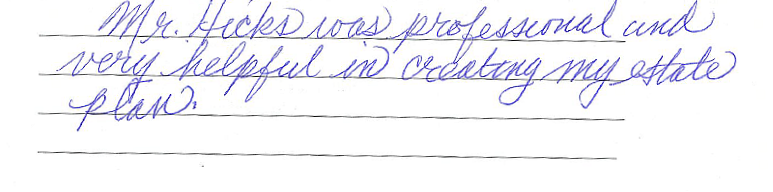 Mr. Hicks was professional and
very helpful in creating my estate
plan.